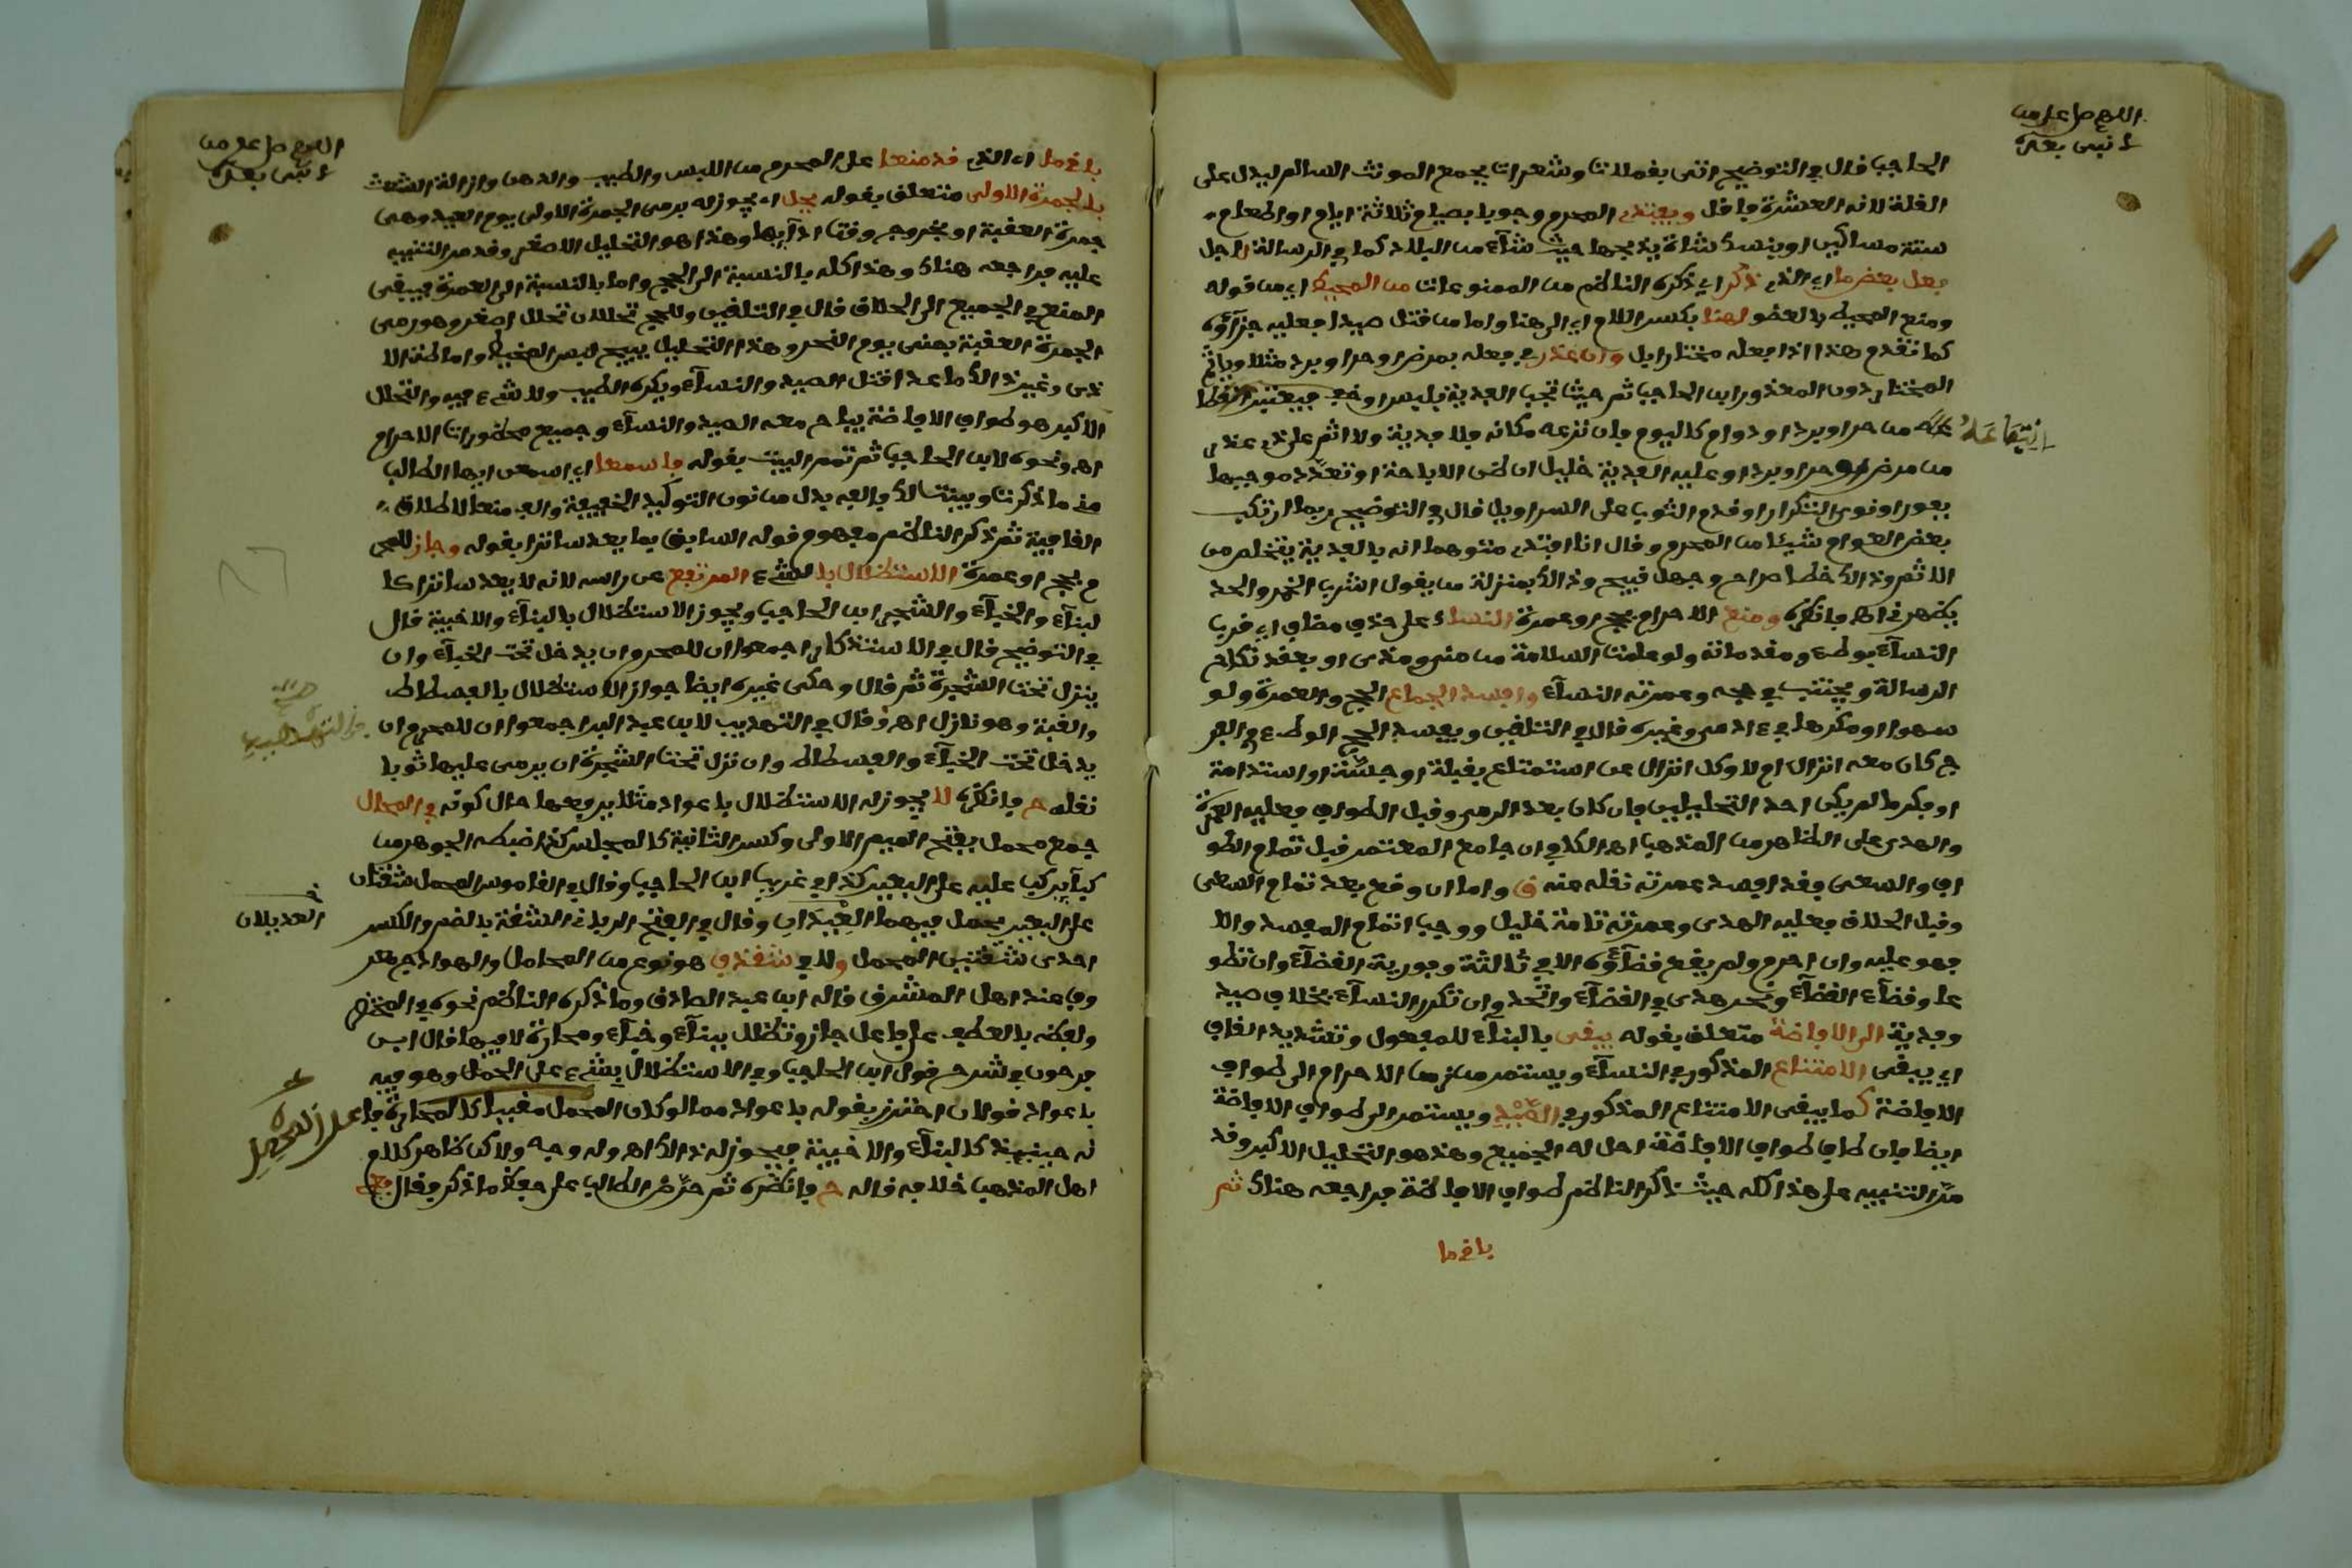 اللهم صل على من
لا نبي بعده
الحاجب قال في التوضيح اتى بقملات وشعرات بجمع المونث السالم ليدل على
القلة لانه العشرة فاقل ويفتدي المحرم وجوبا بصيام ثلاثة ايام او اطعام
ستة مساكين او ينسك شاة يذبحها حيث شآء من البلاد كما في الرسالة لاجل
فعل بعض ما اي الذي ذكر اي ذكره الناظم من الممنوعات من المحيط اي من قوله
ومنع المحيط بالعضو لهنا بكسر اللام اي الى هنا واما من قتل صيدا فعليه جزآؤه
كما تقدم هذا اذا فعله مختارا بل وان عذر في فعله بمرض او حر او برد مثلا وياثم
المختار دون المعذور ابن الحاجب ثم حيث تجب الفدية بلبس او خف فيعتبر
انتفاعه من حر او برد او دوام كاليوم فان نزعه مكانه فلا فدية ولا اثم على ذي عذر
من مرض او حر او برد او عليه الفدية خليل ان ظن الاباحة او تعدد موجبها
بفور او نوى التكرار او قدم الثوب على السراويل قال في التوضيح ربما ارتكب
بعض العوام شيئا من المحرم وقال انا افتدي متوهما انه بالفدية يتخلص من
الاثم وذالك خطا صراح وجهل قبيح وذالك بمنزلة من يقول اشرب الخمر والحد
يطهرني فانظره ومنع الاحرام بحج او عمرة النسا على حذف مضاف اي قرب
النسآء بوطء ومقدماته ولو علمت السلامة من مني ومذي او بعقد نكاح
الرسالة ويجتنب في حجه وعمرته النسآء وافسد الجماع الحج والعمرة ولو
سهوا او مكرها في ءادمي وغيره قال في التلقين ويفسد الحج الوطء في الفر
ج كان معه انزال ام لا وكل انزال عن استمتاع بقبلة او جسة او استدامة
او فكر ما لم يكن احد التحليلين فان كان بعد الرمي وقبل الطواف فعليه العمرة
والهدي على الظاهر من المذهب اه الكافي ان جامع المعتمر قبل تمام الطو
اف والسعي فقد افسد عمرته نقله عنه ق واما ان وقع بعد تمام السعي
وقبل الحلاق فعليه الهدي وعمرته تامة خليل ووجب اتمام المفسد والا
فهو عليه وان احرم ولم يقع قضآؤه الا في ثالثة وفورية القضآء وان تطو
عا وقضآء القضآء ونحر هدي في القضآء واتحد وان تكرر النسآء بخلاف صيد
وفدية الى الافاضة متعلق بقوله يبقى بالبنآء للمفعول وتشديد القاف
اي يبقى الامتناع المذكور في النسآء ويستمر من زمن الاحرام الى طواف
الافاضة كما يبقى الامتناع المذكور في الصيد ويستمر الى طواف الافاضة
ايضا فان طاف طواف الافاضة احل له الجميع وهذا هو التحليل الاكبر وقد
مر التنبيه على هذا كله حيث ذكر الناظم طواف الافاضة فراجعه هناك ثم
باق ما
اللهم صل على من
لا نبي بعده
باق ما اي الذي قد منعا على المحرم من اللبس والطيب والدهن وازالة الشعث
بالجمرة الاولى متعلق بقوله يحل اي يجوز له برمي الجمرة الاولى يوم العيد وهي
جمرة العقبة او بخروج وقت ادآيها وهذا هو التحليل الاصغر وقد مر التنبيه
عليه فراجعه هناك وهذا كله بالنسبة الى الحج واما بالنسبة الى العمرة فيبقى
المنع في الجميع الى الحلاق قال في التلقين وللحج تحللان تحلل اصغر وهو رمي
الجمرة العقبة بمنى يوم النحر وهذا التحليل يبيح لبس المخيط واماطة الا
ذى وغير ذالك ما عدا قتل الصيد والنسآء ويكره الطيب ولا شيء فيه والتحلل
الاكبر هو طواف الافاضة يباح معه الصيد والنسآء وجميع محظورات الاحرام
اه ونحوه لابن الحاجب ثم تمم البيت بقوله فاسمعا اي اسمعن ايها الطالب
ما ذكرت وبينت لك فالفه بدل من نون التوكيد الخفيفة والف منعا لاطلاق
القافية ثم ذكر الناظم مفهوم قوله السابق بما يعد ساترا بقوله وجاز للمحر
م بحج او عمرة الاستظلال بالشيء المرتفع عن راسه لانه لا يعد ساترا كا
لبنآء والخبآء والشجر ابن الحاجب ويجوز الاستظلال بالبنآء والاخبية قال
في التوضيح قال في الاستذكار اجمعوا ان للمحرم ان يدخل تحت الخبآء وان
ينزل تحت الشجرة ثم قال وحكى غيره ايضا جواز الاستظلال بالفسطاط
والقبة وهو نازل اه وقال في التهذيب لابن عبد البر اجمعوا ان للمحرم ان
يدخل تحت الخبآء والفسطاط وان نزل تحت الشجرة ان يرمي عليها ثوبا
نقله ح فانظره لا يجوز له الاستظلال باعواد مثلا يرفعها حال كونه في المحامل
جمع محمل بفتح الميم الاولى وكسر الثانية كالمجلس كذا ضبطه الجوهري
كبآ يركب عليه على البعير كذا في غريب ابن الحاجب وقال في القاموس المحمل شقتان
على البعير يحمل فيهما العديلان وقال في الفتح الرباني الشقة بالضم والكسر
العديلان
احدى شقتي المحمل ولا في شقدف هو نوع من المحامل والهوادج
وف عند اهل المشرق قاله ابن عبد الصادق وما ذكره الناظم نحوه في المختصر
ولفظه بالعطف على فاعل جاز وتظلل ببنآء وخبآء ومحارة لا فيها قال ابن
فرحون في شرح قول ابن الحاجب وفي الاستظلال بشيء على المحمل وهو فيه
باعواد قولان احترز بقوله باعواد مما لو كان المحمل مقببا كالمحارة فا
نه حينيذ كالبنآء والاخبية فيجوز له ذالك اه وله وجه ولاكن ظاهر كلام
اهل المذهب خلافه قاله ح فانظره ثم حرض الطالب على حفظ ما ذكر فقال